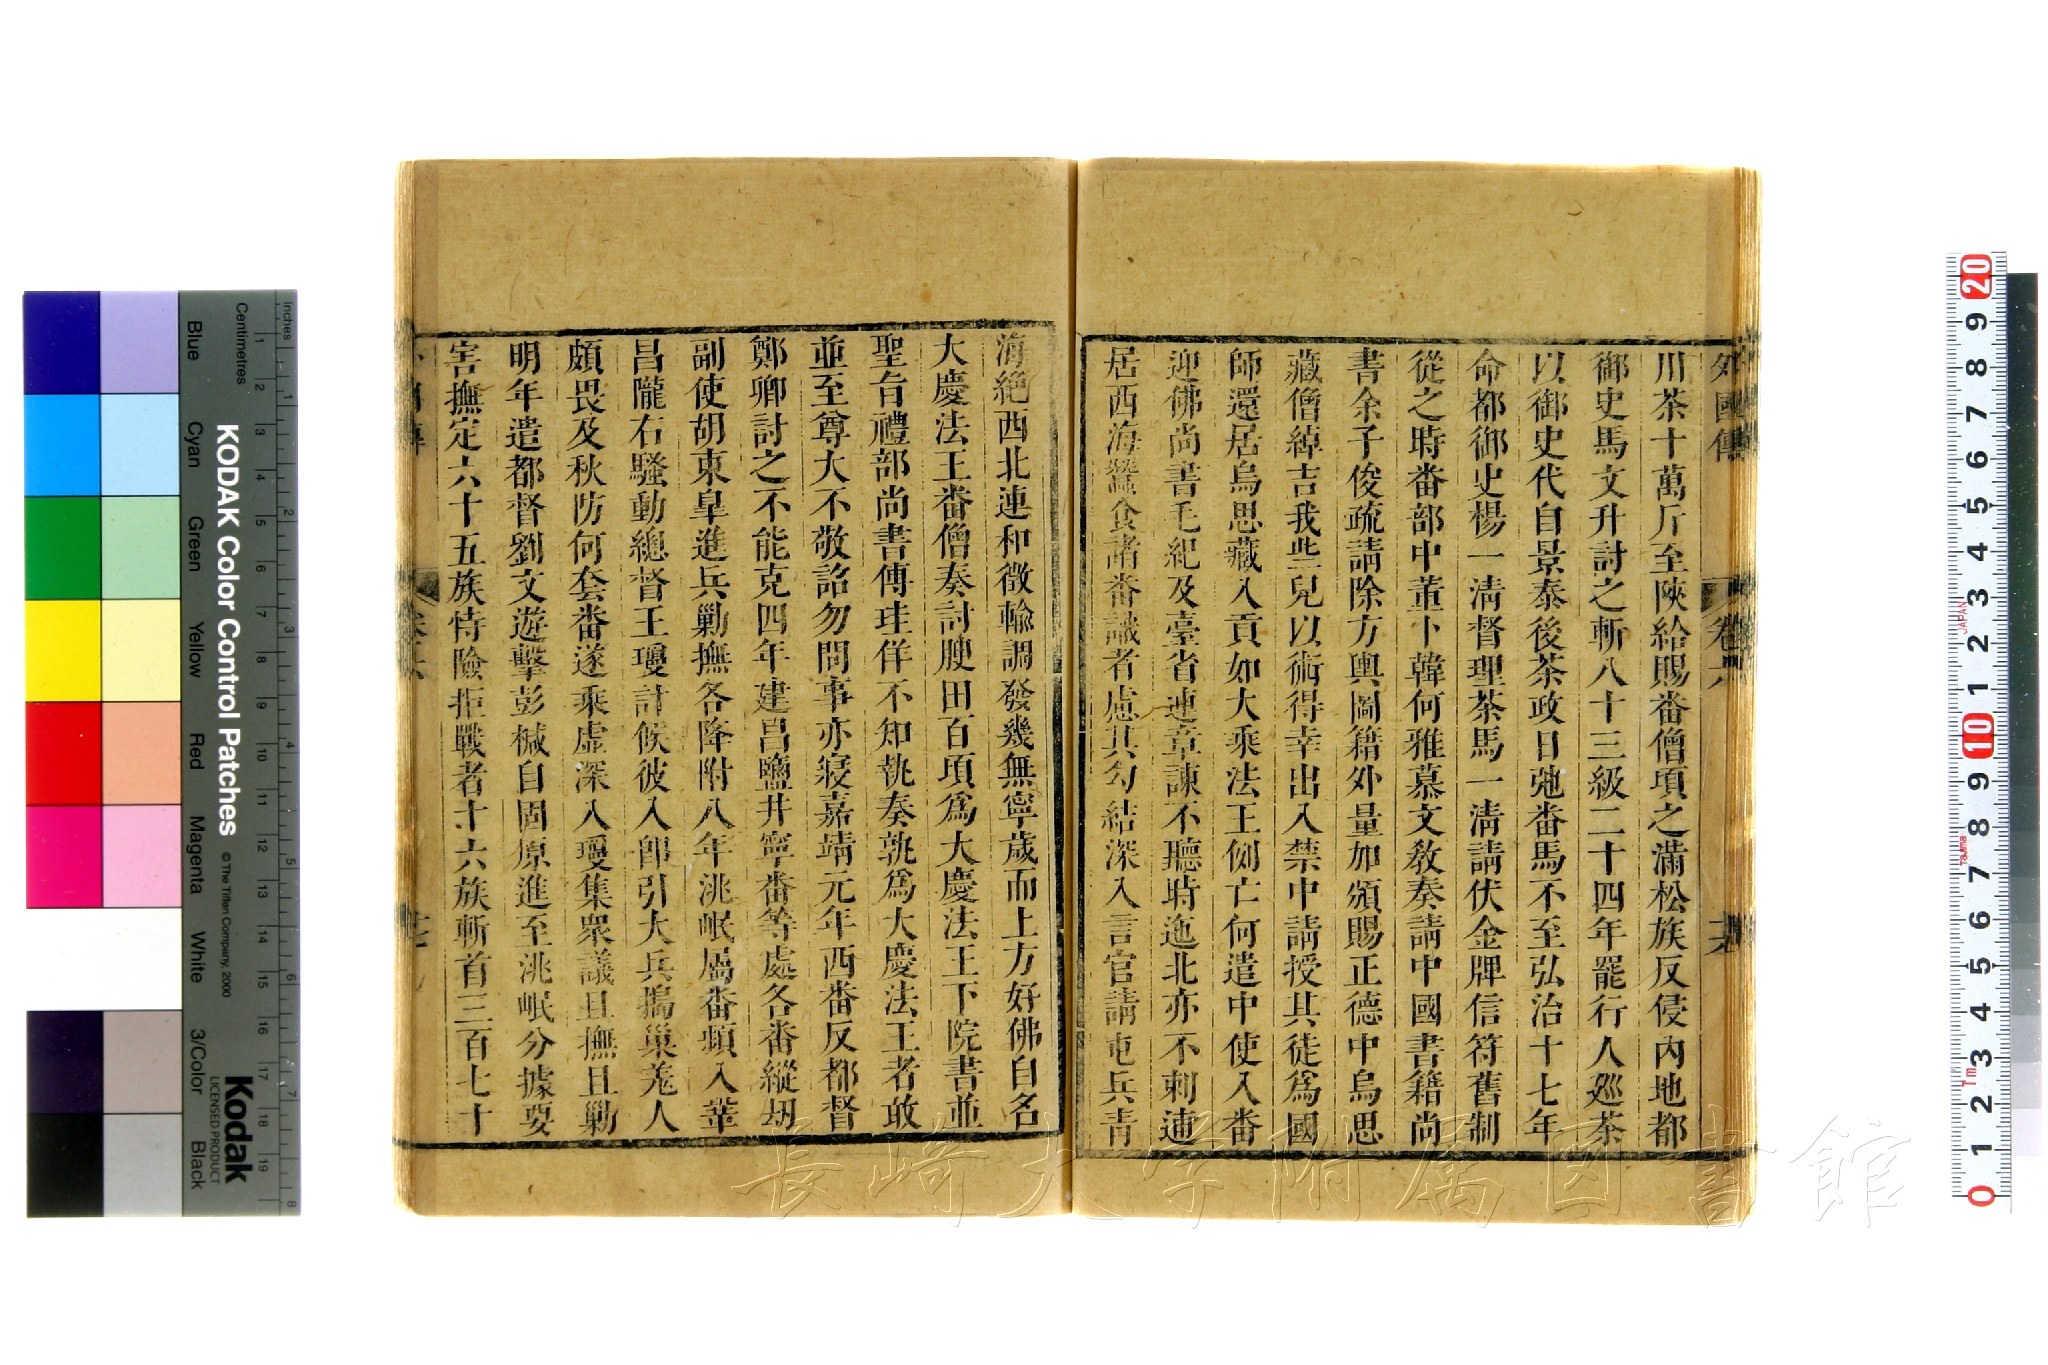 外國傳
卷六
川茶十萬斤至陜給賜番僧項之滿松族反侵內地都
御史馬文升討之斬八十三級二十四年罷行人巡茶
以御史代自景泰後茶政日弛番馬不至弘治十七年
命都御史楊一淸督理茶馬一淸請伏金牌信符舊制
從之時番部中董卜韓何雅慕文敎奏請中國書籍尚
書余子俊疏請除方輿圖籍外量加頒賜正德中烏思
藏僧綽吉我些兒以術得幸出入禁中請授其徒爲國
師還居烏思藏入貢如大乘法王例亡何遣中使入番
迎佛尚書毛紀及臺省連章諫不聽時迤北亦不剌連
居西海蠶食諸番識者慮其勾結深入言官請屯兵靑
海絕西北連和徵輸調發幾無寧歲而上方好佛自名
大慶法王番僧奏討腴田百頃爲大慶法王下院書並
聖旨禮部尚書傅珪佯不知執奏孰爲大慶法王者敢
並至尊大不敬詔勿問事亦寢嘉靖元年西番反都督
鄭卿討之不能克四年建昌鹽井寧番等處各番縱刼
副使胡東皐進兵勦撫各降附八年洮岷屬番頻入鞏
昌隴右騷動總督王瓊計候彼入卽引大兵搗巢羌人
頗畏及秋防何套番遂乘虛深入瓊集衆議且撫且勦
明年遣都督劉文遊擊彭椷自固原進至洮岷分據要
害撫定六十五族恃險拒戰者十六族斬首三百七十
KODAK Color Control Patches
© The Tiffen Company, 2000
Kodak
LICENSED PRODUCT
Inches
Centimetres
Blue
Cyan
Green
Yellow
Red
Magenta
White
3/Color
Black
JAPAN
Tajima
長崎大学附属図書館